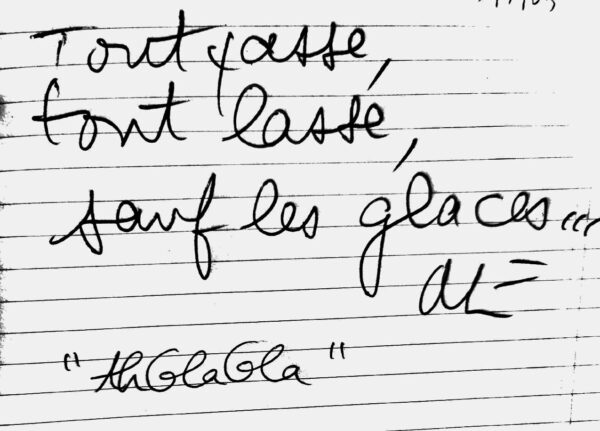 Tout passe,
tout lasse,
sauf les glaces...
"AhGlaGla"